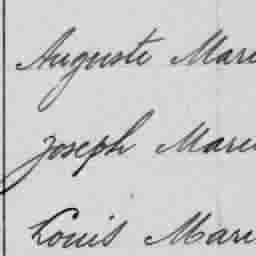 Auguste Mari
Joseph Mari
Louis Mari